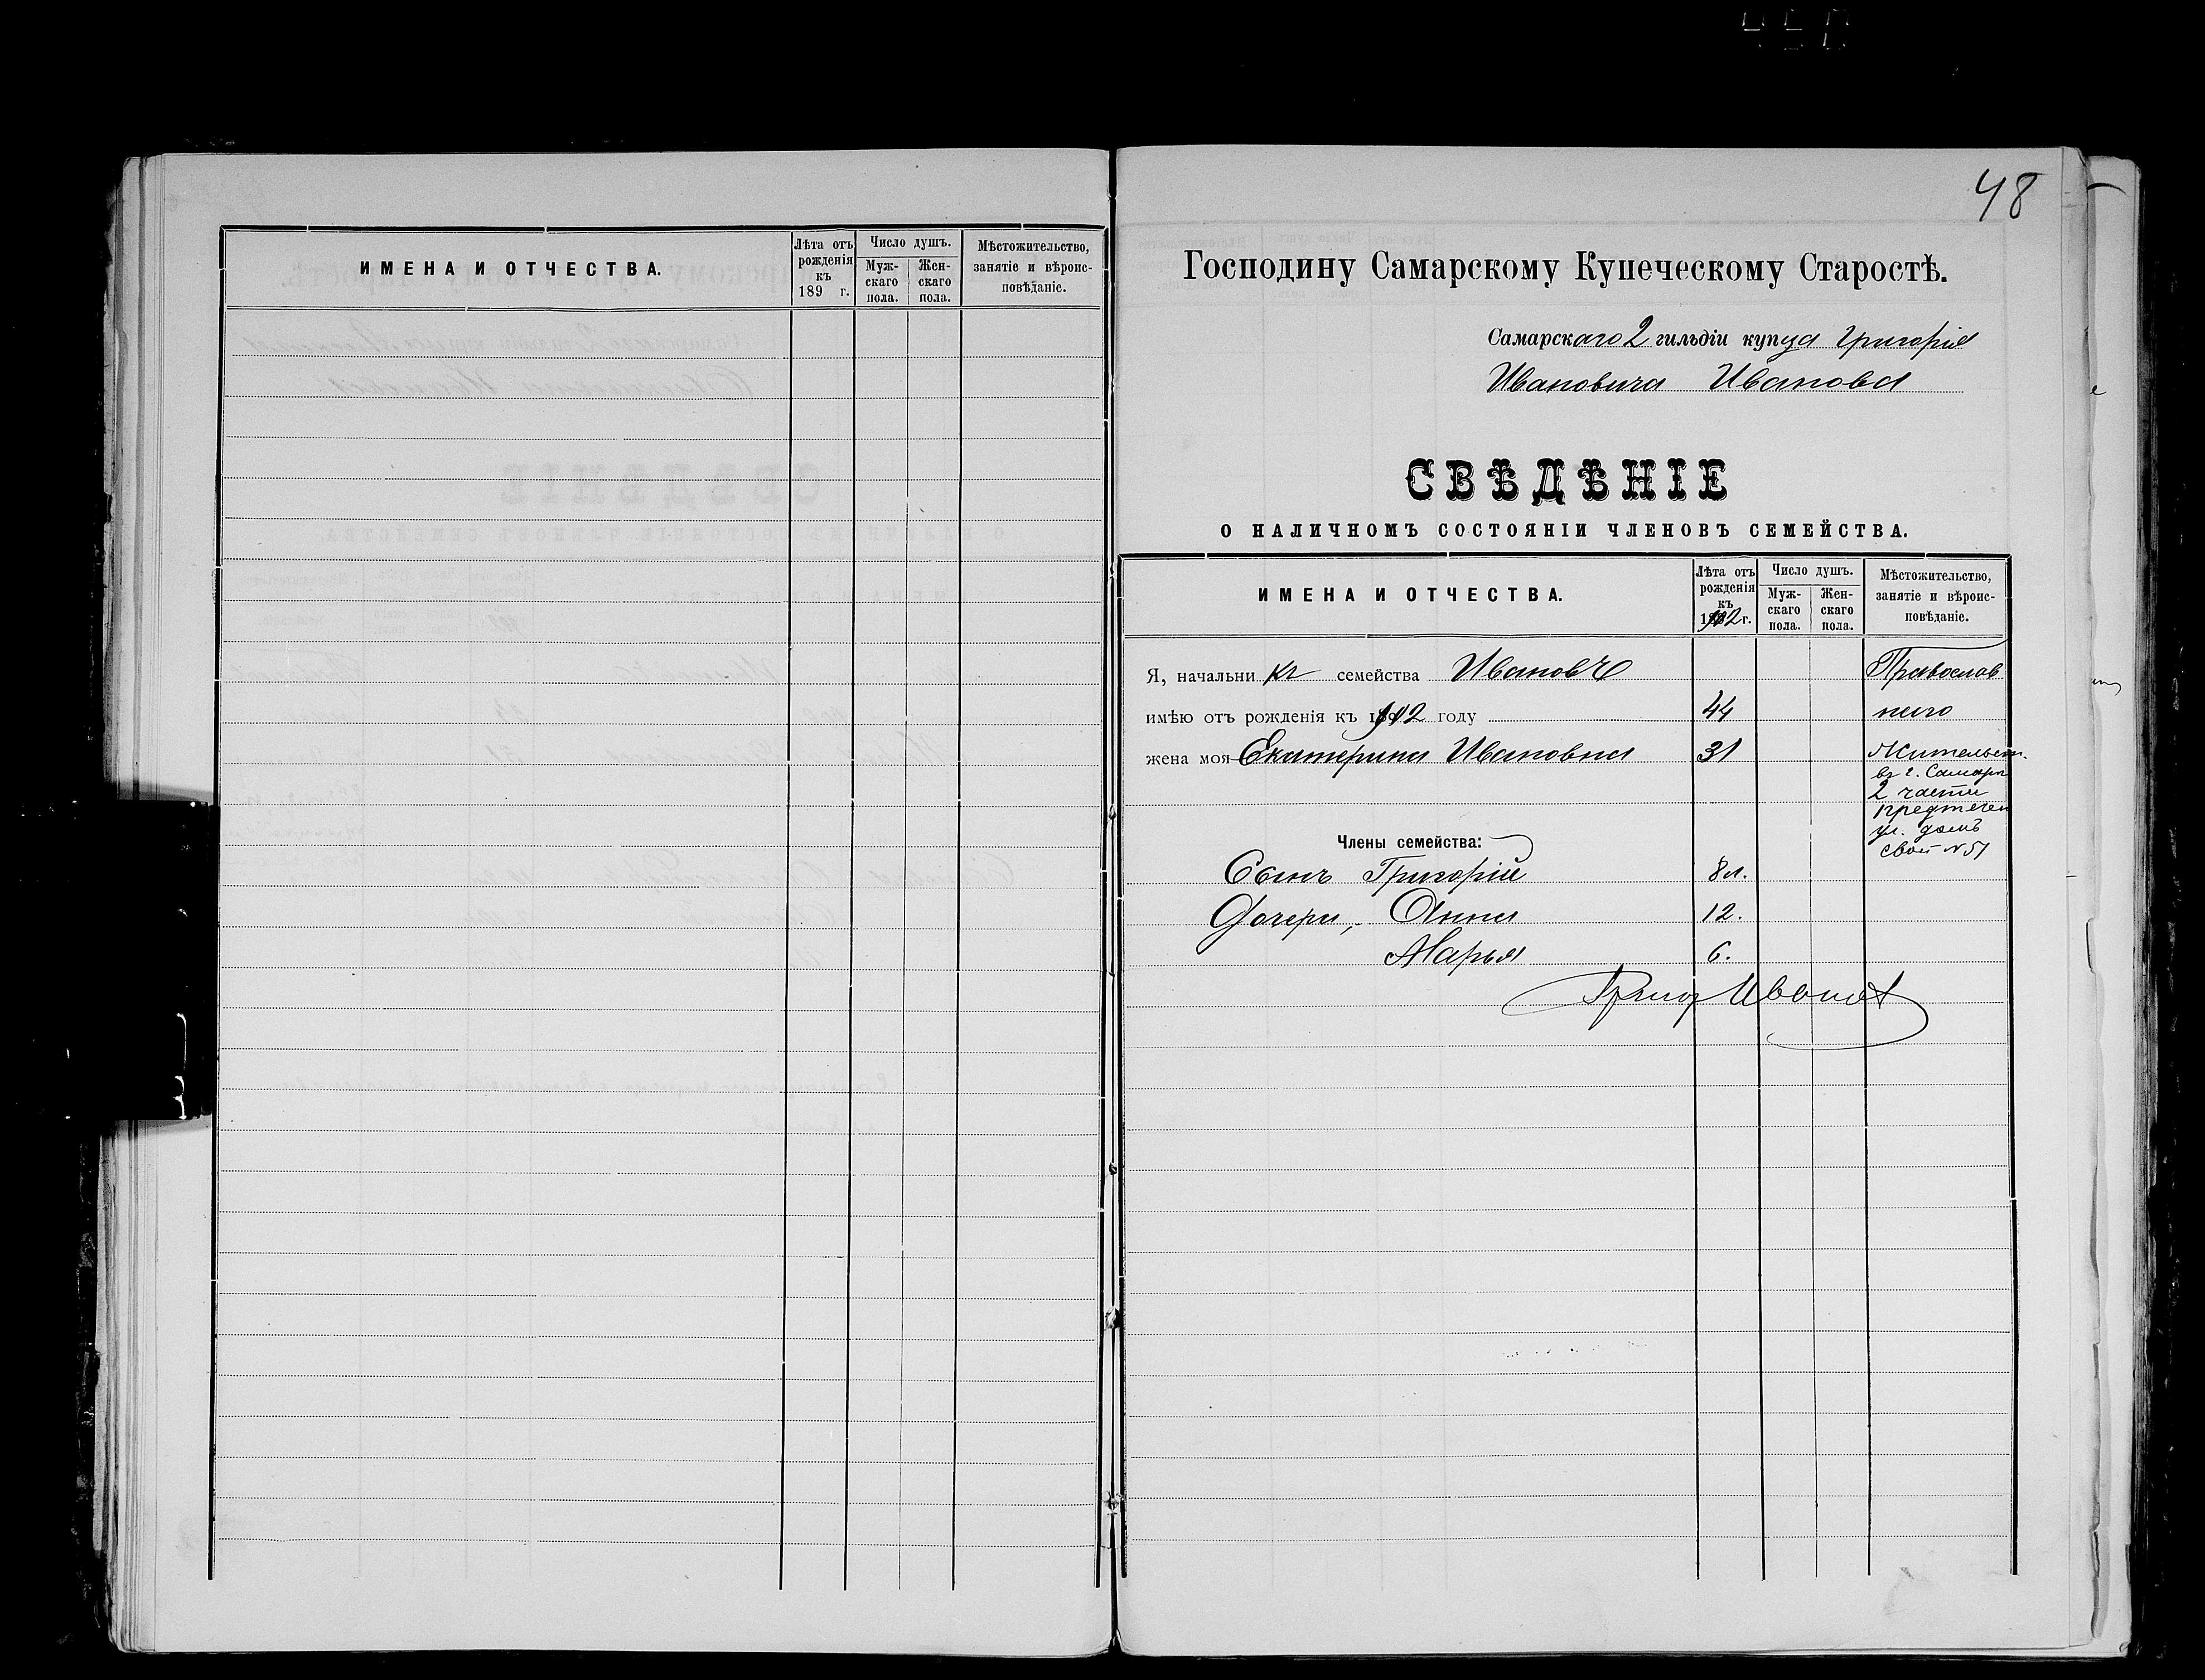 ИМЕНА И ОТЧЕСТВА.
Лѣта отъ рожденія къ 189 г.
Число душъ.
Муж-скаго пола.
Жен-скаго пола.
Мѣстожительство, занятіе и вѣроис-повѣданіе.
48
Господину Самарскому Купеческому Старостѣ.
Самарскаго 2 гильдіи купца Григорія
Ивановича Иванова
СВѢДѢНІЕ
О НАЛИЧНОМЪ СОСТОЯНІИ ЧЛЕНОВЪ СЕМЕЙСТВА.
ИМЕНА И ОТЧЕСТВА.
Лѣта отъ рожденія къ 1902 г.
Число душъ.
Муж-скаго пола.
Жен-скаго пола.
Мѣстожительство, занятіе и вѣроис-повѣданіе.
Я, начальникъ семейства Ивановъ Православ
имѣю отъ рожденія къ 1902 году 44 наго
жена моя Екатерина Ивановна 31 Жительст.
въ г. Самарѣ
2 части
предтечен
ул. домъ
свой №51
Члены семейства:
Сынъ Григорій 8 л.
Дочери, Анна 12.
Марья 6.
Григ Иванов